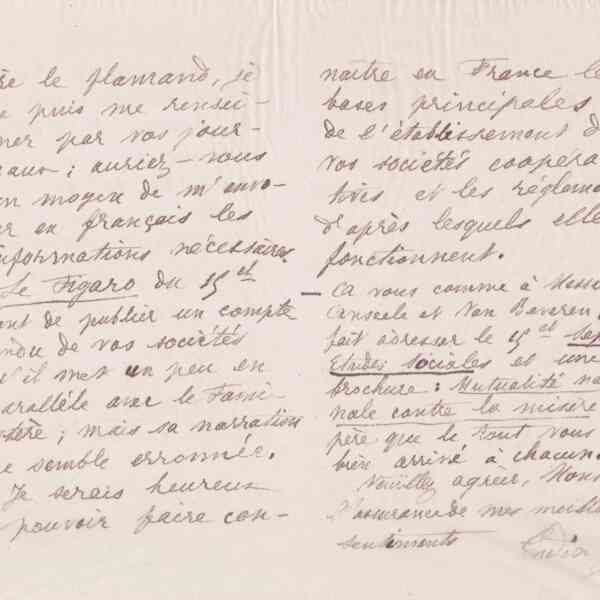 re le flamand, je
puis me rensei-
ner par vos jour-
aux; auriez-vous
un moyen de m'envo-
er en français les
informations nécessaires.
Le Figaro du 15 et
ent de publier un compte
endu de vos sociétés
u'il met un peu en
parallèle avec le Fami-
stère; mais sa narration
e semble erronnée.
Je serais heureux
pouvoir faire con-
naître en France le
bases principales
de l'établissement d
vos sociétés coopéra
tives et les réglem
d'après lesquels elle
fonctionnent.
— A vous comme à Mess
Anseele et Van Beveren,
fait adresser le 15 et
Etudes sociales et une
brochure: Mutualité na
nale contre la misère
père que le tout vous
bien arrivé à chacun.
Veuillez agréer, Mons
l'assurance de mes meille
sentiments